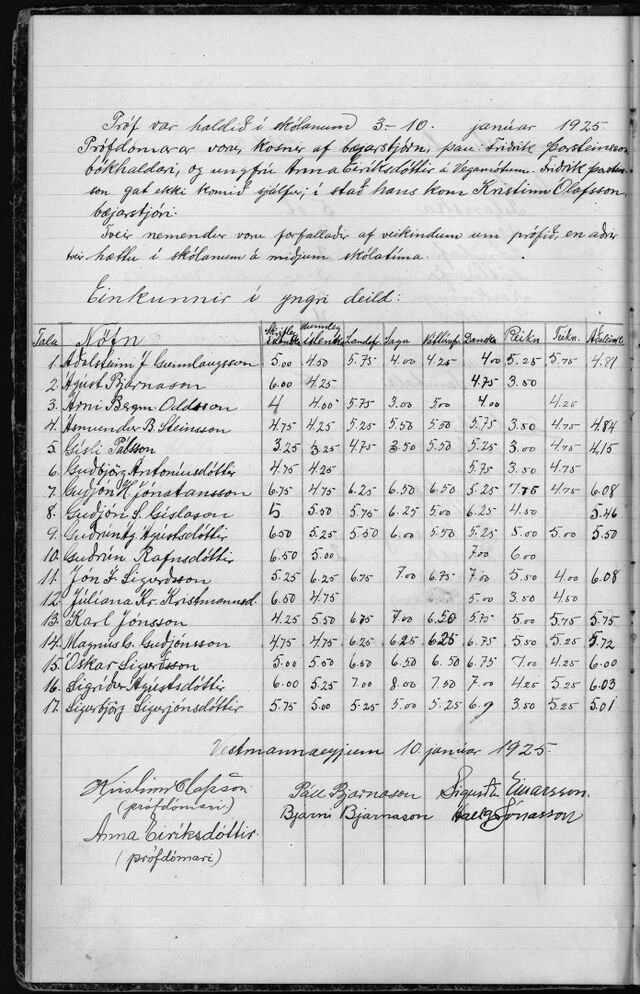 Próf var haldið í skólanum 3-10. janúar 1925.
Prófdómarar voru, kosnir af bæjarstjórn, þau: Friðrik Þorsteinsson
bókhaldari, og ungfrú Anna Eiríksdóttir á Vegamótum. Friðrik Þorsteins-
son gat ekki komið sjálfur; í stað hans kom Kristinn Ólafsson
bæjarstjóri.
Tveir nemendur voru forfallaðir af veikindum um prófið, en aðrir
tveir hættu í skólanum á miðjum skólatíma.
Einkunnir í yngri deild:
Tala Nöfn Skrifleg íslenska Munnleg íslenska Landaf. Saga Danska Reikn Teikn. Aðaleink
1. Aðalsteinn J. Gunnlaugsson 5.00 4.50 5.75 4.00 4.25 4.00 5.25 5.75 4.81
2. Ágúst Bjarnason 6.00 4.25 4.75 3.50
3. Árni Bergm. Oddsson 4 4.00 5.75 3.00 5.00 4.00 4.25
4. Ásmundur B. Steinsson 4.75 4.25 5.25 5.50 5.00 5.75 3.50 4.75 4.84
5. Gísli Pálsson 3.25 3.25 4.75 3.50 5.50 5.25 3.00 4.75 4.15
6. Guðbjörg Antoníusdóttir 4.75 4.25 5.75 3.50 4.75
7. Guðjón H. Jónatansson 6.75 4.75 6.25 6.50 6.50 5.25 7.75 4.75 6.08
8. Guðjón S. Gíslason 5 5.00 5.75 6.25 5.00 6.25 4.50 5.46
9. Guðrún Ág. Ágústsdóttir 6.50 5.25 5.50 6.00 5.50 5.25 5.00 5.00 5.50
10. Guðrún Rafnsdóttir 6.50 5.00 7.00 6.00
11. Jón I. Sigurðsson 5.25 6.25 6.75 7.00 6.75 7.00 5.50 4.00 6.08
12. Júlíana Kr. Kristmannsd. 6.50 4.75 5.00 3.50 4.50
13. Karl Jónsson 4.25 5.50 6.75 7.00 6.50 5.75 5.00 5.75 5.75
14. Magnús G. Guðjónsson 4.75 4.75 6.25 6.25 6.25 6.75 5.50 5.25 5.72
15. Óskar Sigurðsson 5.00 5.00 6.50 6.50 6.50 6.75 7.00 4.25 6.00
16. Sigríður Ágústsdóttir 6.00 5.25 7.00 8.00 7.50 7.00 4.25 5.25 6.03
17. Sigurbjörg Sigurjónsdóttir 5.75 5.00 5.25 5.00 5.25 6.9 3.50 5.25 5.01
Vestmannaeyjum 10 janúar 1925.
Kristinn Ólafsson Páll Bjarnason Sigurður Einarsson.
(prófdómari) Bjarni Bjarnason Hallgr. Jónasson
Anna Eiríksdóttir.
(prófdómari)